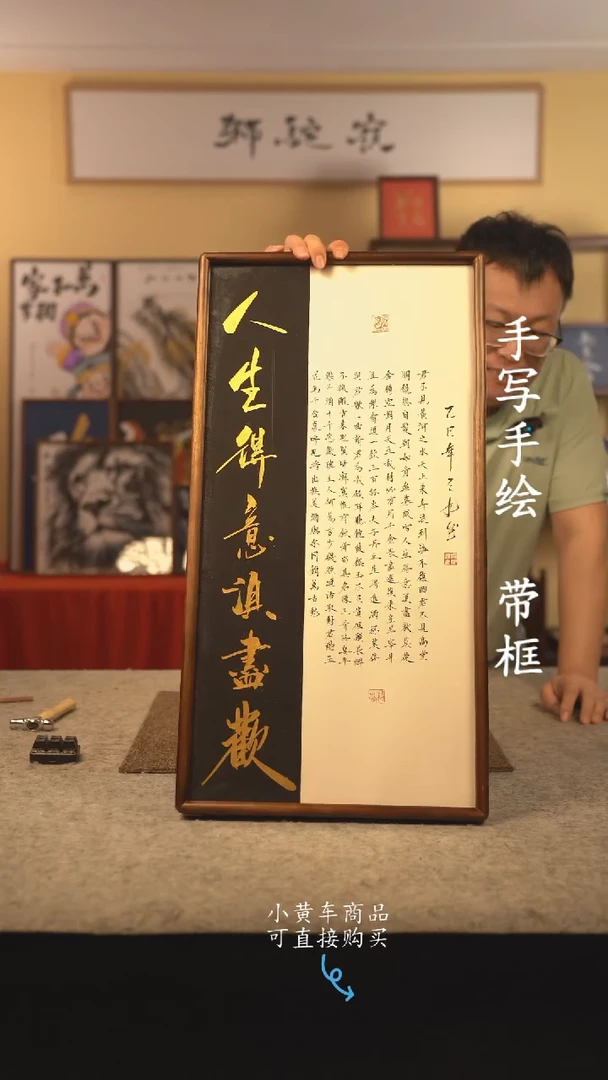 人生得意須盡歡
乙巳年
君不見黃河之水天上來奔流到海不復回君不見高堂
明鏡悲白髮朝如青絲暮成雪人生得意須盡歡莫使
金樽空對月天生我材必有用千金散盡還復來烹羊宰牛
且為樂會須一飲三百杯岑夫子丹丘生將進酒杯莫停
與君歌一曲請君為我傾耳聽鐘鼓饌玉不足貴但願長醉
不復醒古來聖賢皆寂寞惟有飲者留其名陳王昔時宴平
樂斗酒十千恣歡謔主人何為言少錢徑須沽取對君酌五
花馬千金裘呼兒將出換美酒與爾同銷萬古愁
手写手绘 带框
小黄车商品
可直接购买